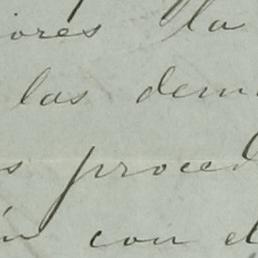 iores la
las dem
s proced
ón con el